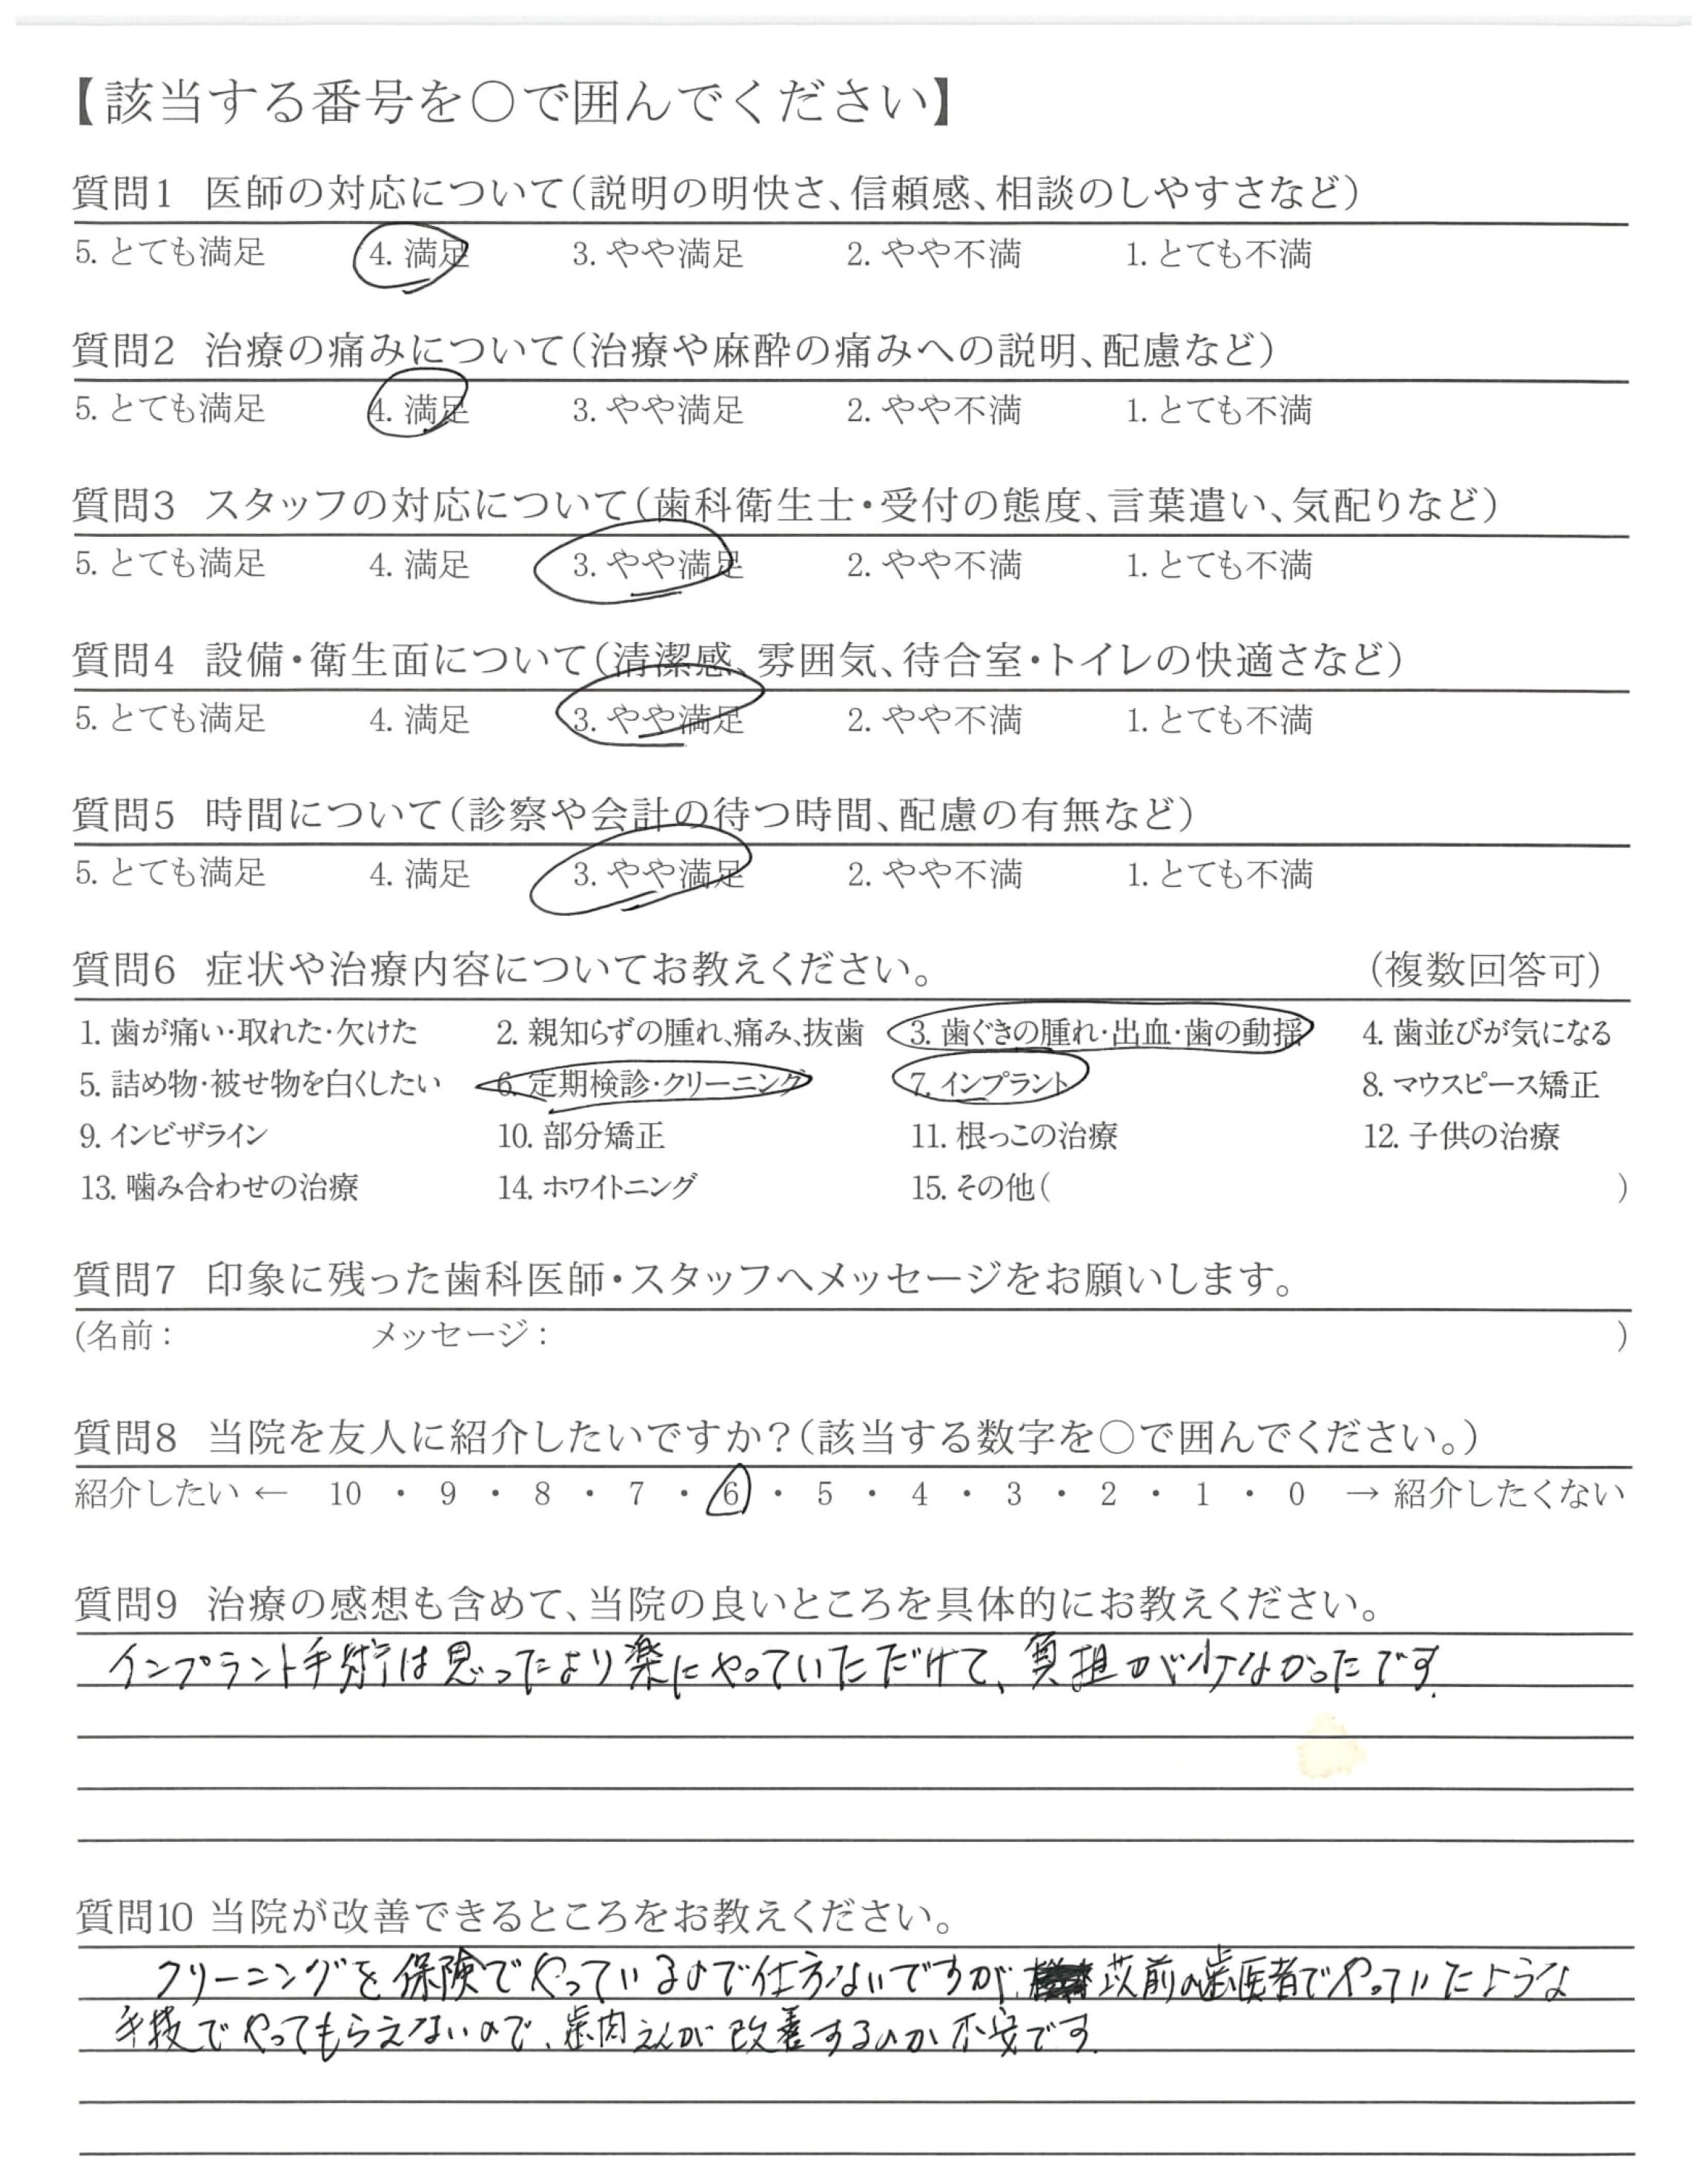 【該当する番号を○で囲んでください】
質問1 医師の対応について(説明の明快さ、信頼感、相談のしやすさなど)
5. とても満足 4. 満足 3. やや満足 2. やや不満 1. とても不満
質問2 治療の痛みについて(治療や麻酔の痛みへの説明、配慮など)
5. とても満足 4. 満足 3. やや満足 2. やや不満 1. とても不満
質問3 スタッフの対応について(歯科衛生士・受付の態度、言葉遣い、気配りなど)
5. とても満足 4. 満足 3. やや満足 2. やや不満 1. とても不満
質問4 設備・衛生面について(清潔感、雰囲気、待合室・トイレの快適さなど)
5. とても満足 4. 満足 3. やや満足 2. やや不満 1. とても不満
質問5 時間について(診察や会計の待つ時間、配慮の有無など)
5. とても満足 4. 満足 3. やや満足 2. やや不満 1. とても不満
質問6 症状や治療内容についてお教えください。 (複数回答可)
1. 歯が痛い・取れた・欠けた 2. 親知らずの腫れ、痛み、抜歯 3. 歯ぐきの腫れ・出血・歯の動揺 4. 歯並びが気になる
5. 詰め物・被せ物を白くしたい 6. 定期検診・クリーニング 7. インプラント 8. マウスピース矯正
9. インビザライン 10. 部分矯正 11. 根っこの治療 12. 子供の治療
13. 噛み合わせの治療 14. ホワイトニング 15. その他( )
質問7 印象に残った歯科医師・スタッフへメッセージをお願いします。
(名前： メッセージ： )
質問8 当院を友人に紹介したいですか？(該当する数字を○で囲んでください。)
紹介したい ← 10 ・ 9 ・ 8 ・ 7 ・ 6 ・ 5 ・ 4 ・ 3 ・ 2 ・ 1 ・ 0 → 紹介したくない
質問9 治療の感想も含めて、当院の良いところを具体的にお教えください。
インプラント手術は思ったより楽にやっていただけて、負担が少なかったです.
質問10 当院が改善できるところをお教えください。
クリーニングを保険でやっているので仕方ないですが、以前の歯医者でやっていたような
手技でやってもらえないので、歯肉えんが改善するのか不安です.